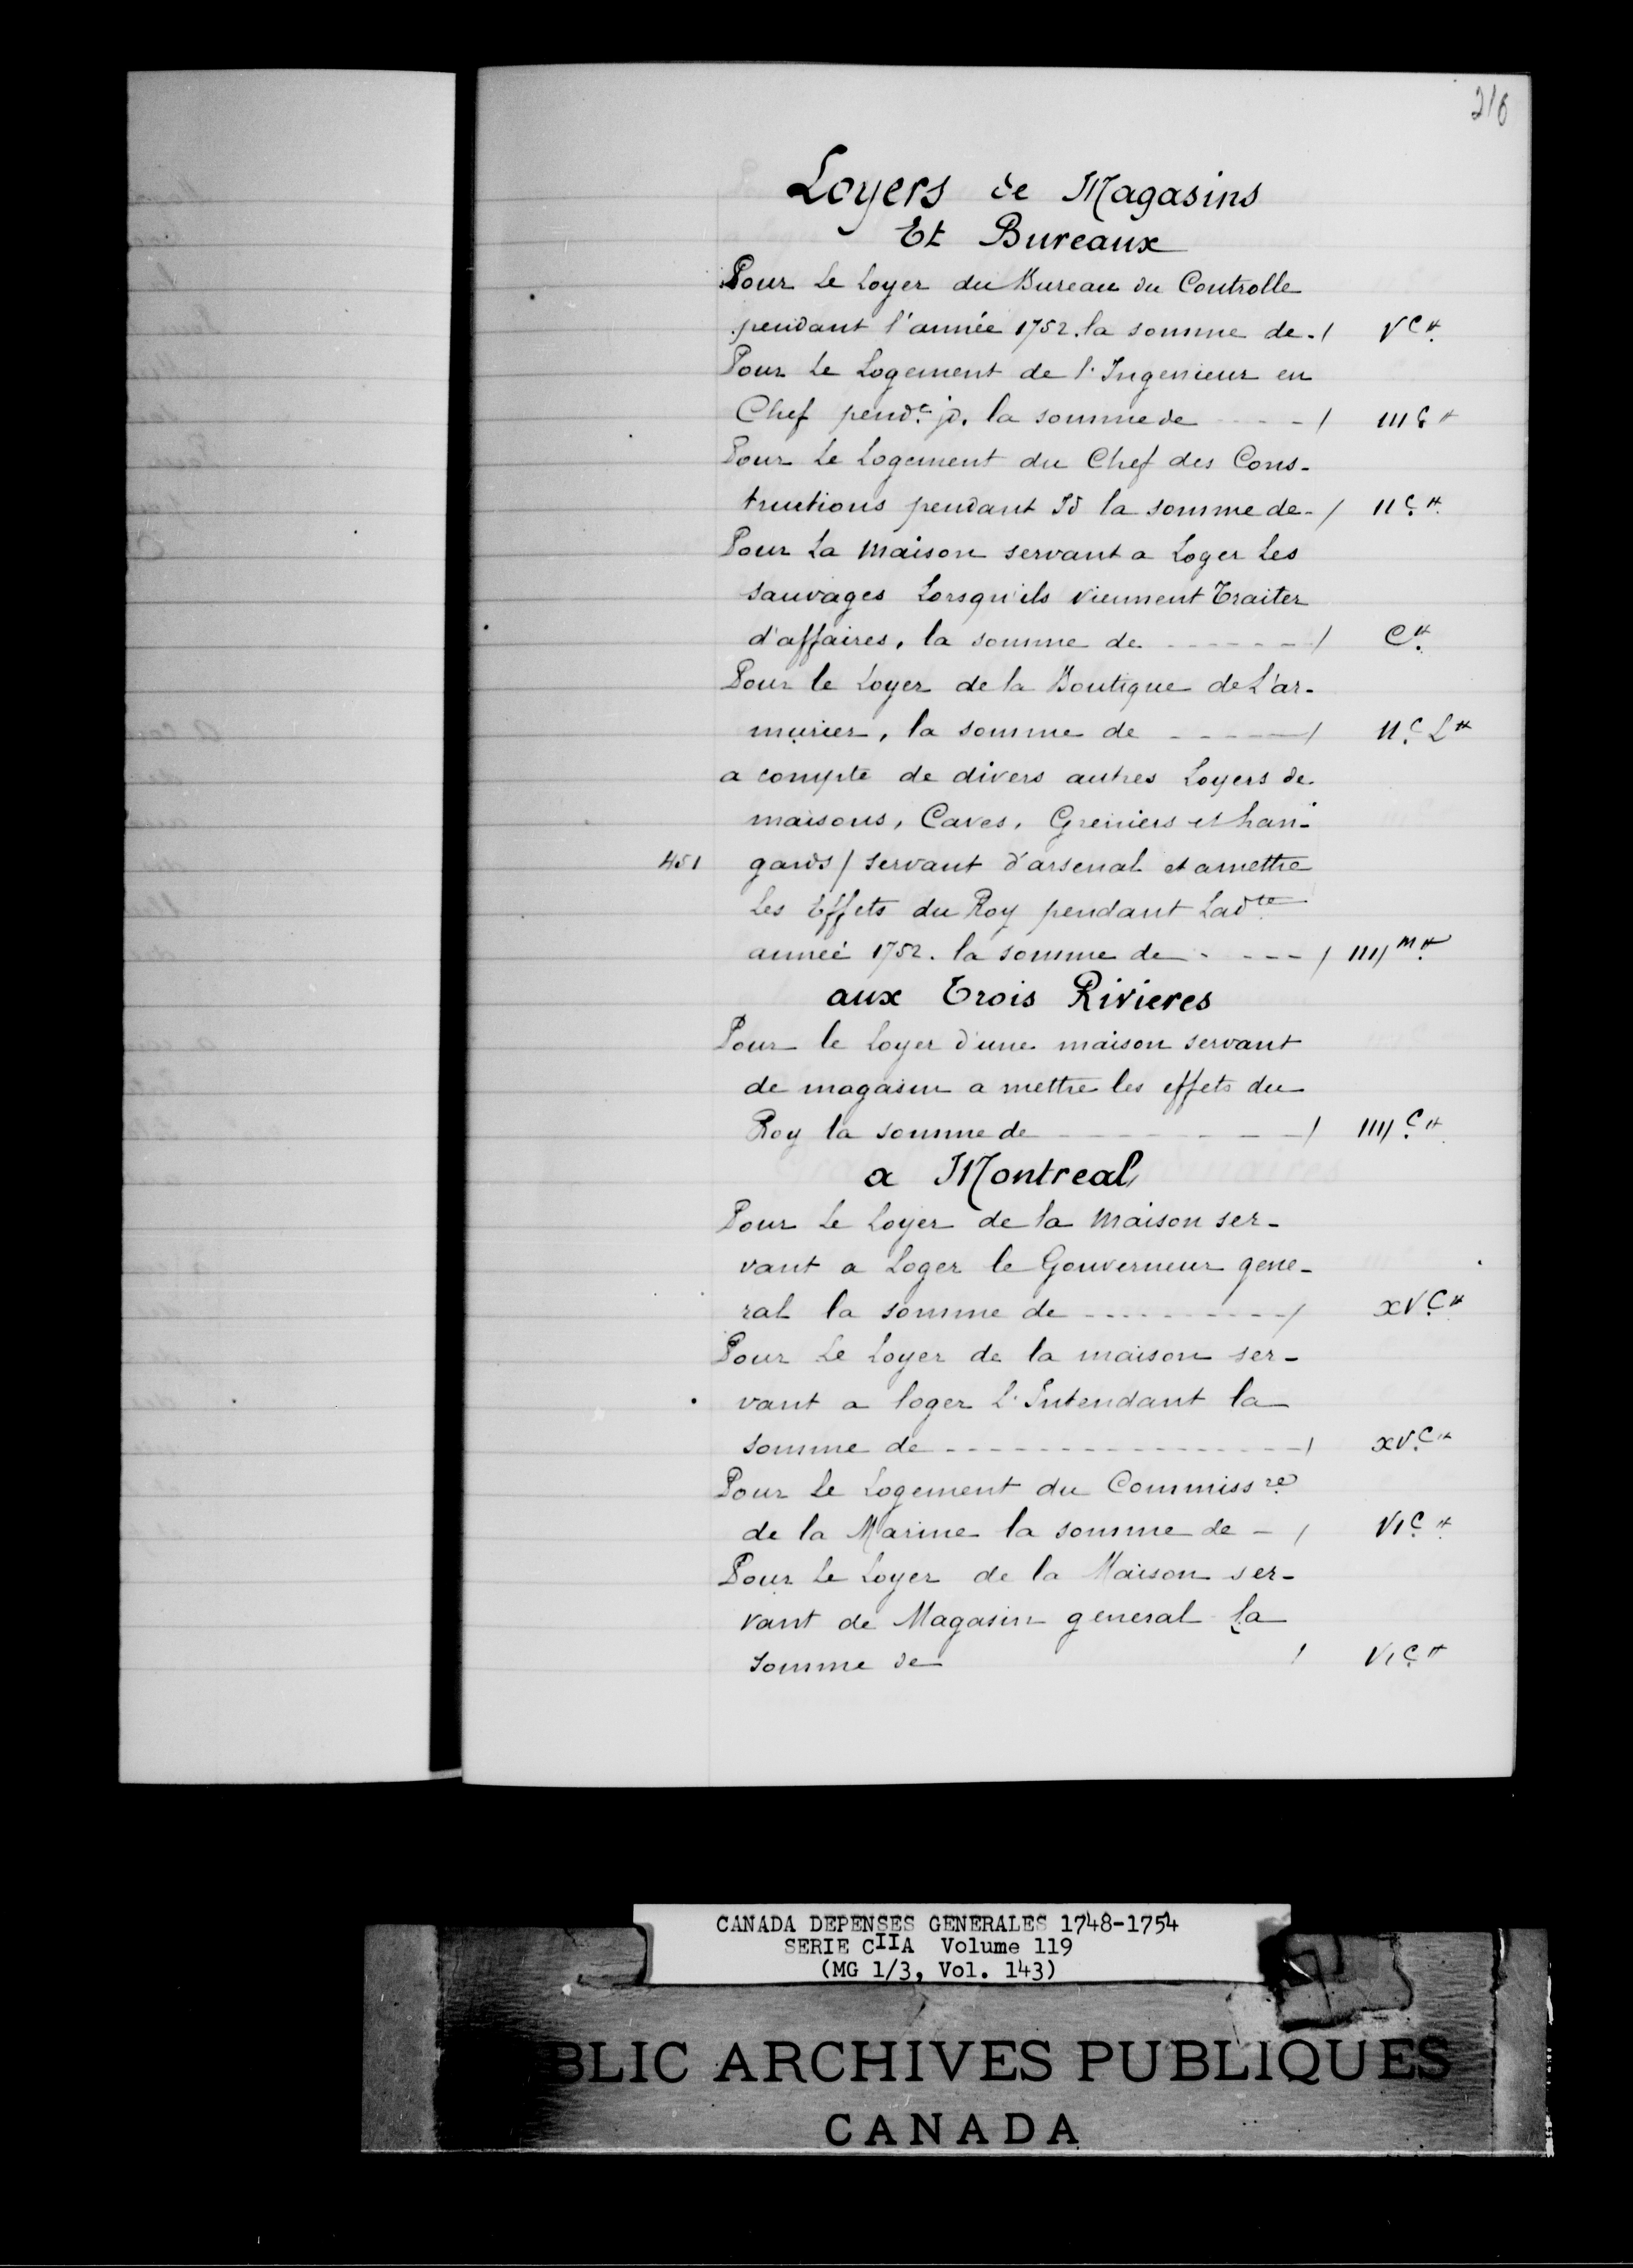 216
Loyers de Magasins
Et Bureaux
Pour Le Loyer du Bureau du Controlle
pendant l'année 1752. la somme de. / V C ₶
Pour Le Logement de l'Ingenieur en
Chef pend.t jd. la somme de ---- / III C ₶
Pour Le Logement du Chef des Cons-
tructions pendant Id la somme de - / II C ₶
Pour La Maison servant a Loger Les
sauvages Lorsqu'ils viennent Traiter
d'affaires, la somme de ------ / C ₶
Pour le Loyer de la Boutique de L'ar-
murier, la somme de ----- / II C L ₶
a compte de divers autres Loyers de
maisons, Caves, Greniers et han-
451 gards / servant d'arsenal et a mettre
Les Effets du Roy pendant Ladte
année 1752. la somme de ---- / IIII M ₶
aux Trois Rivieres
Pour le Loyer d'une maison servant
de magasin a mettre les effets du
Roy la somme de ------- / IIII C ₶
a Montreal
Pour Le Loyer de la Maison ser-
vant a Loger le Gouverneur gene-
ral la somme de --------- / XV C ₶
Pour Le Loyer de la maison ser-
vant a loger L'Intendant la
somme de --------------- / XV C ₶
Pour Le Logement du Commissre
de la Marine la somme de - / VI C ₶
Pour Le Loyer de la Maison ser-
vant de Magasin general la
somme de / VI C ₶
CANADA DEPENSES GENERALES 1748-1754
SERIE CIIA Volume 119
(MG 1/3, Vol. 143)
BLIC ARCHIVES PUBLIQUES
CANADA